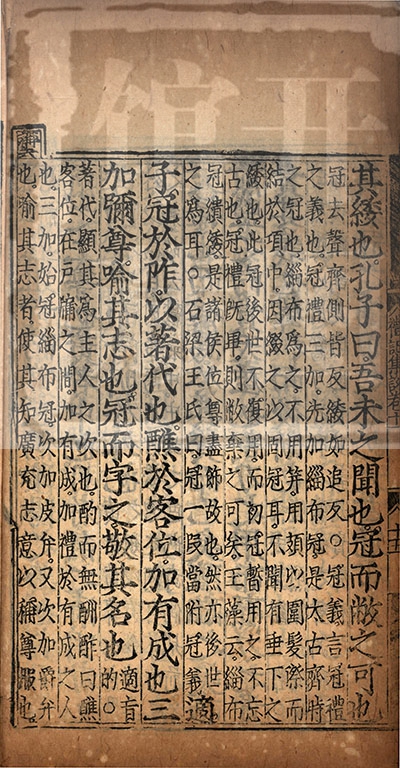 其緌也孔子曰吾未之聞也冠而敝之可也
冠去聲齊側皆反緌如追反○冠義言冠禮
之義也冠禮三加先加緇布冠是太古齊時
之冠也緇布爲之不用筓用頍以圍髪際而
結於項中因綴之以固冠耳不聞有垂下之
緌也此冠後世不復用而初冠暫用之不忘
古也冠禮既畢則敝棄之可矣玉藻云緇布
冠繢緌是諸侯位尊盡飾故也然亦後世
之爲耳○石梁王氏曰冠一段當附冠義適
子冠於阼以著代也醮於客位加有成也三
加彌尊喻其志也冠而字之敬其名也適音的○
著代顯其爲主人之次也酌而無酬酢曰醮
客位在戸牖之間加有成加禮於有成之人
也三加始冠緇布冠次加皮弁又次加爵弁
也喻其志者使其知廣充志意以稱尊服也